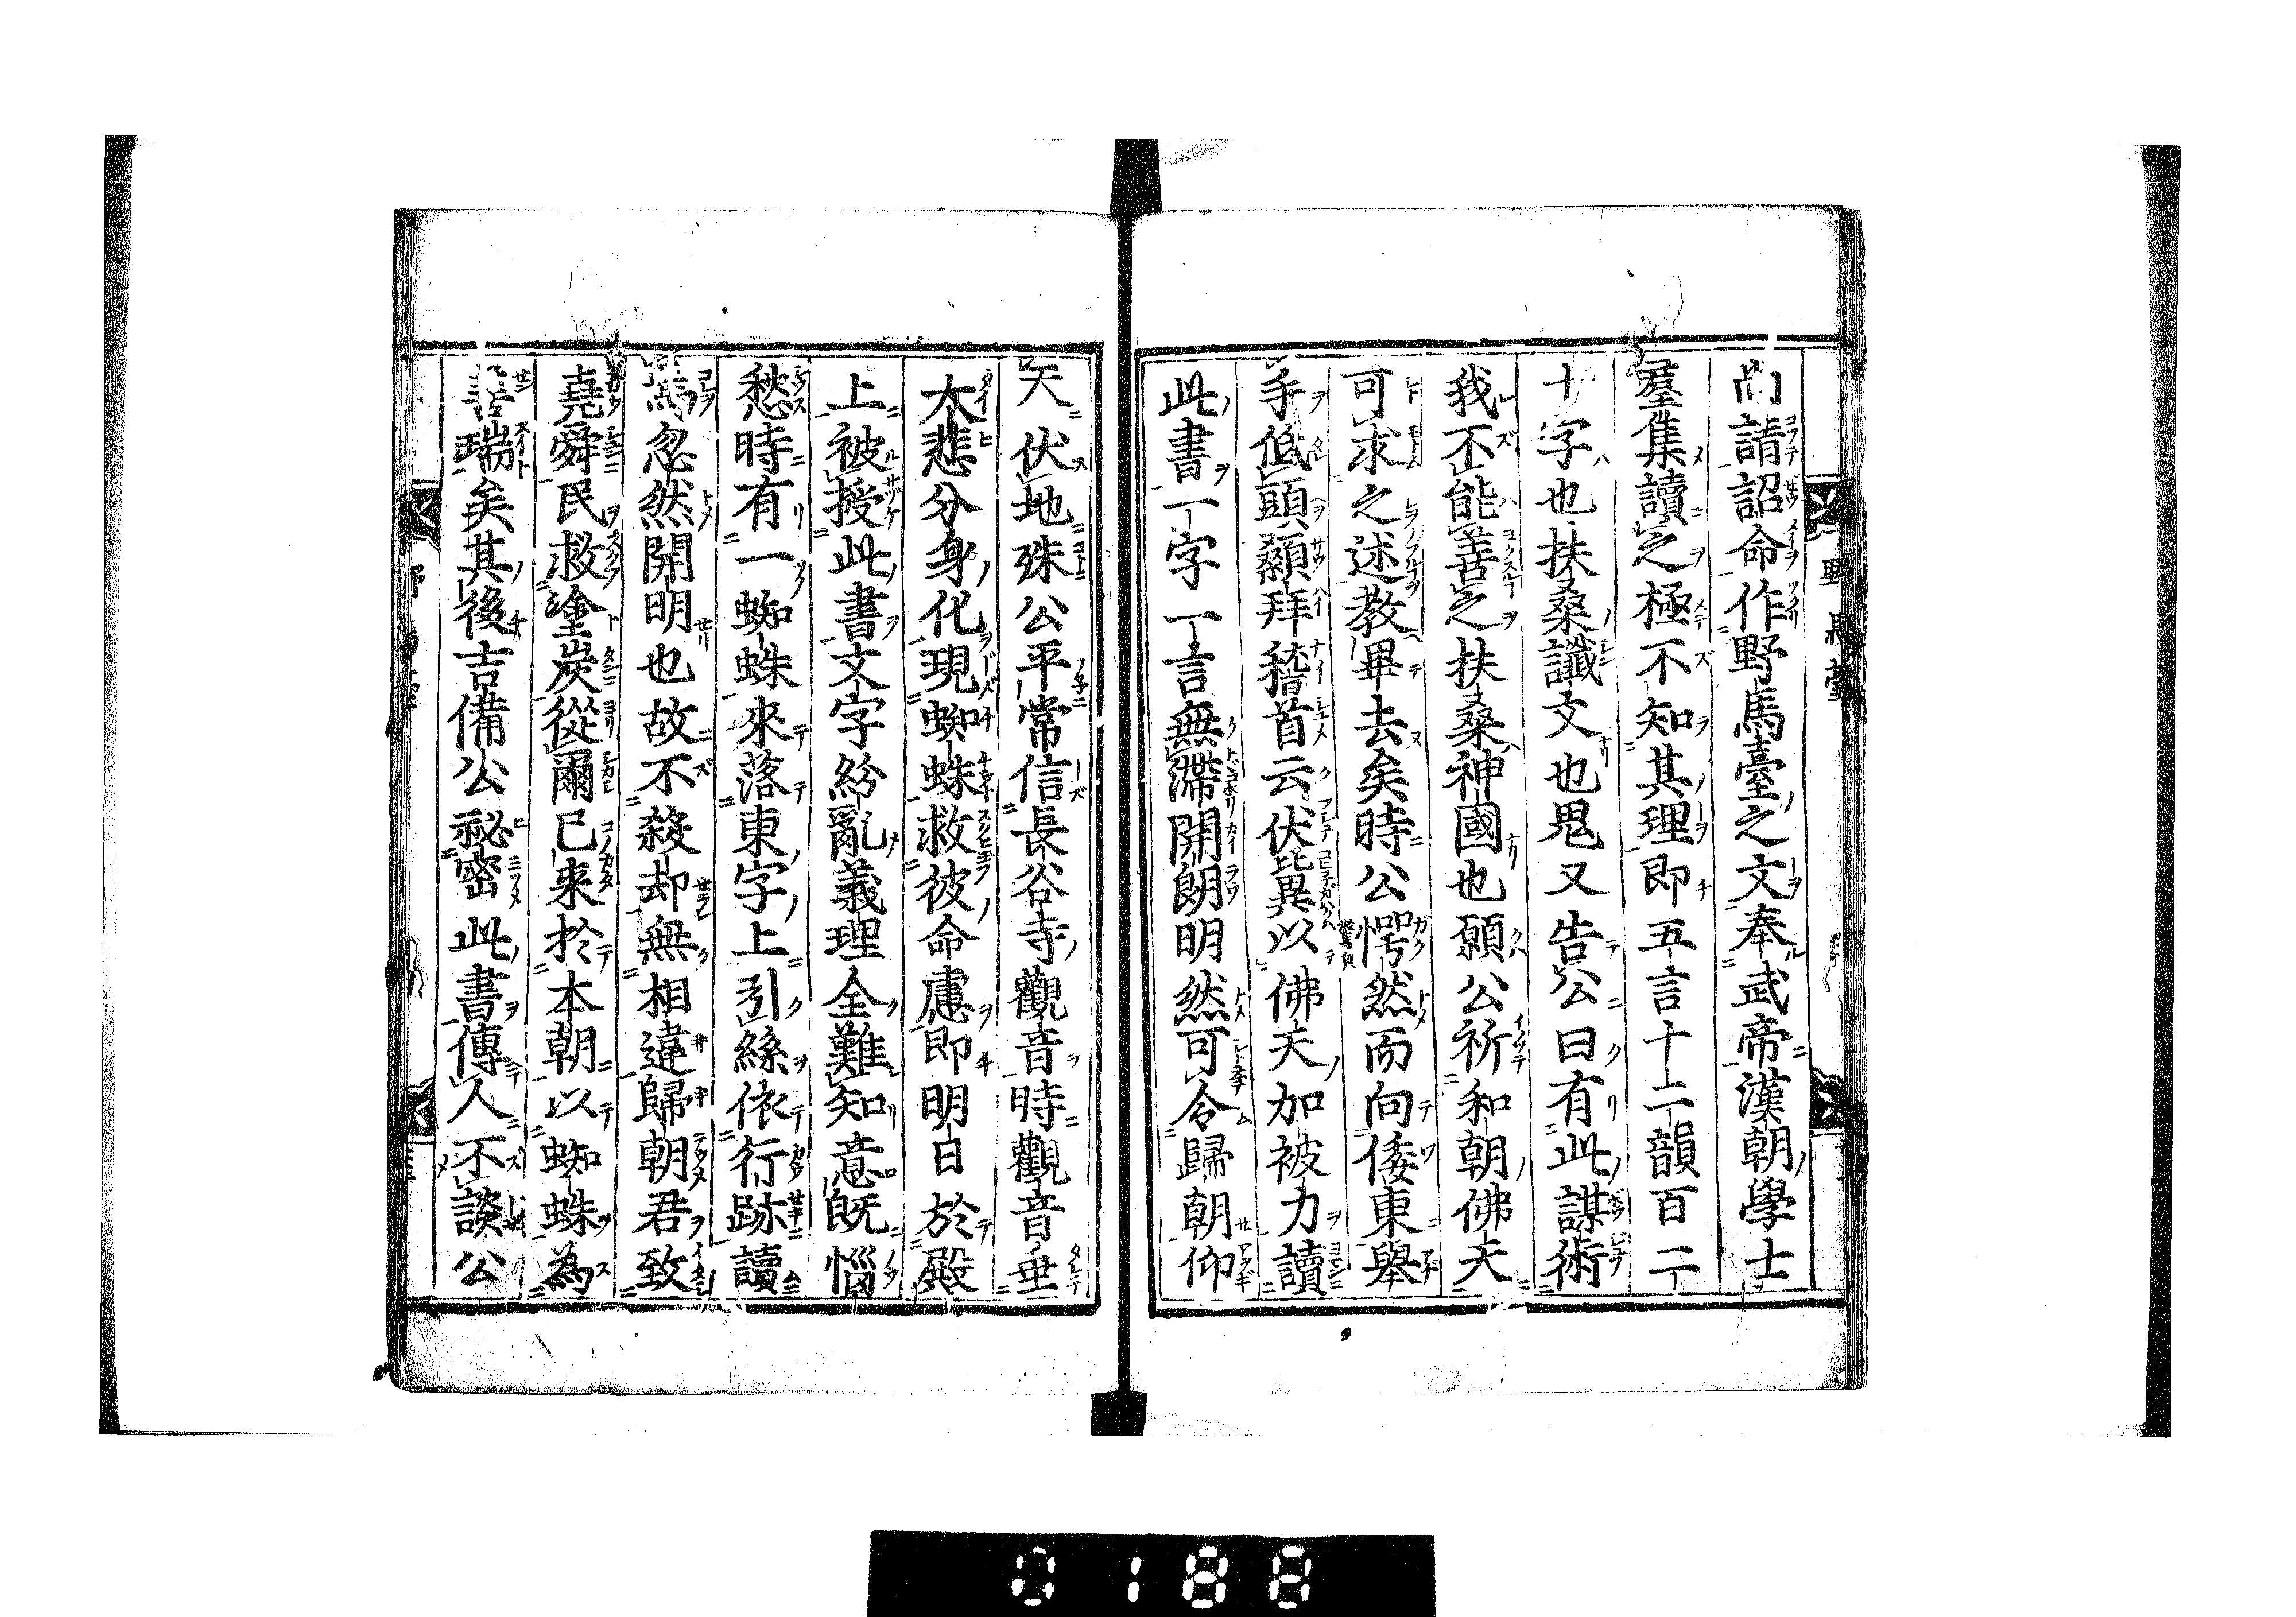 尚請詔命作野馬臺之文奉武帝漢朝學士
羣集讀之極不知其理即五言十二韻百二
十字也扶桑讖文也鬼又告公曰有此謀術
我不能善之扶桑神國也願公祈和朝佛天
可求之述教畢去矣時公愕然而向倭東舉
手低頭顙拜稽首云伏冀以佛天加被力讀
此書一字一言無滯開朗明然可令歸朝仰
天伏地殊公平常信長谷寺觀音時觀音垂
大悲分身化現蜘蛛救彼命慮即明日於殿
上被授此書文字紛亂義理全難知意既惱
愁時有一蜘蛛來落東字上引絲依行跡讀
焉忽然開明也故不殺却無相違歸朝君致
堯舜民救塗炭從爾已来於本朝以蜘蛛為
善瑞矣其後吉備公祕密此書傳人不談公
野馬臺
0188